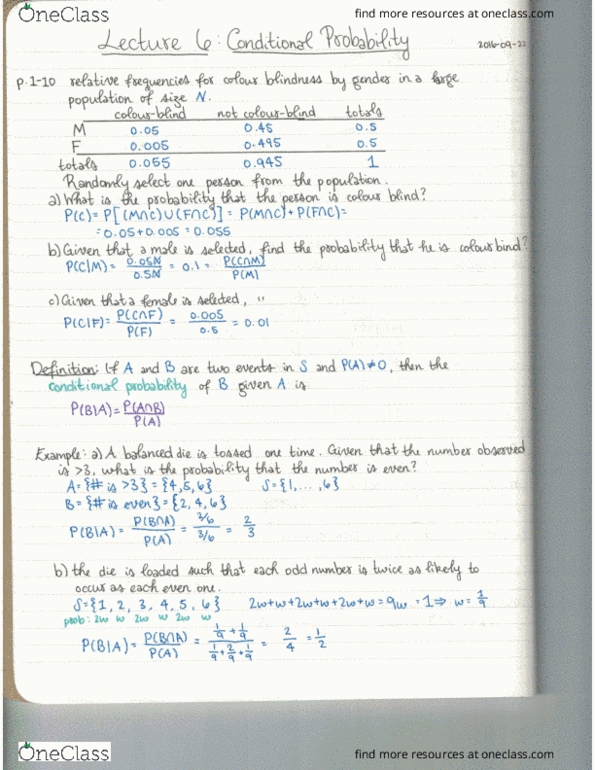 OneClass find more resources at oneclass.com
Lecture 6: Conditional Probability 2016-09-22
p.1-10 relative frequencies for colour blindness by gender in a large
population of size N.
colour-blind not colour-blind totals
M 0.05 0.45 0.5
F 0.005 0.495 0.5
totals 0.055 0.945 1
Randomly select one person from the population.
a) What is the probability that the person is colour blind?
P(C) = P[(M∩C)∪(F∩C)] = P(M∩C)+P(F∩C)=
= 0.05+0.005 = 0.055
b) Given that a male is selected, find the probability that he is colour bind?
P(C|M) = 0.05N/0.5N = 0.1 = P(C∩M)/P(M)
c) Given that a female is selected, "
P(C|F) = P(C∩F)/P(F) = 0.005/0.5 = 0.01
Definition: If A and B are two events in S and P(A)≠0, then the
conditional probability of B given A is
P(B|A) = P(A∩B)/P(A)
Example: a) A balanced die is tossed one time. Given that the number observed
is >3, what is the probability that the number is even?
A = {# is >3} = {4,5,6} S={1,...,6}
B = {# is even} = {2,4,6}
P(B|A) = P(B∩A)/P(A) = 2/6/3/6 = 2/3
b) the die is loaded such that each odd number is twice as likely to
occur as each even one.
S={1, 2, 3, 4, 5, 6} 2w+w+2w+w+2w+w=9w=1⇒ w=1/9
prob: 2w w 2w w 2w w
P(B|A) = P(B∩A)/P(A) = 1/9+1/9/1/9+2/9+1/9 = 2/4 = 1/2
OneClass find more resources at oneclass.com